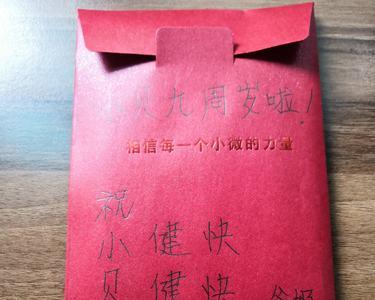 贝九周岁啦！
相信每一个小微的力量
祝小贝
健健
快快